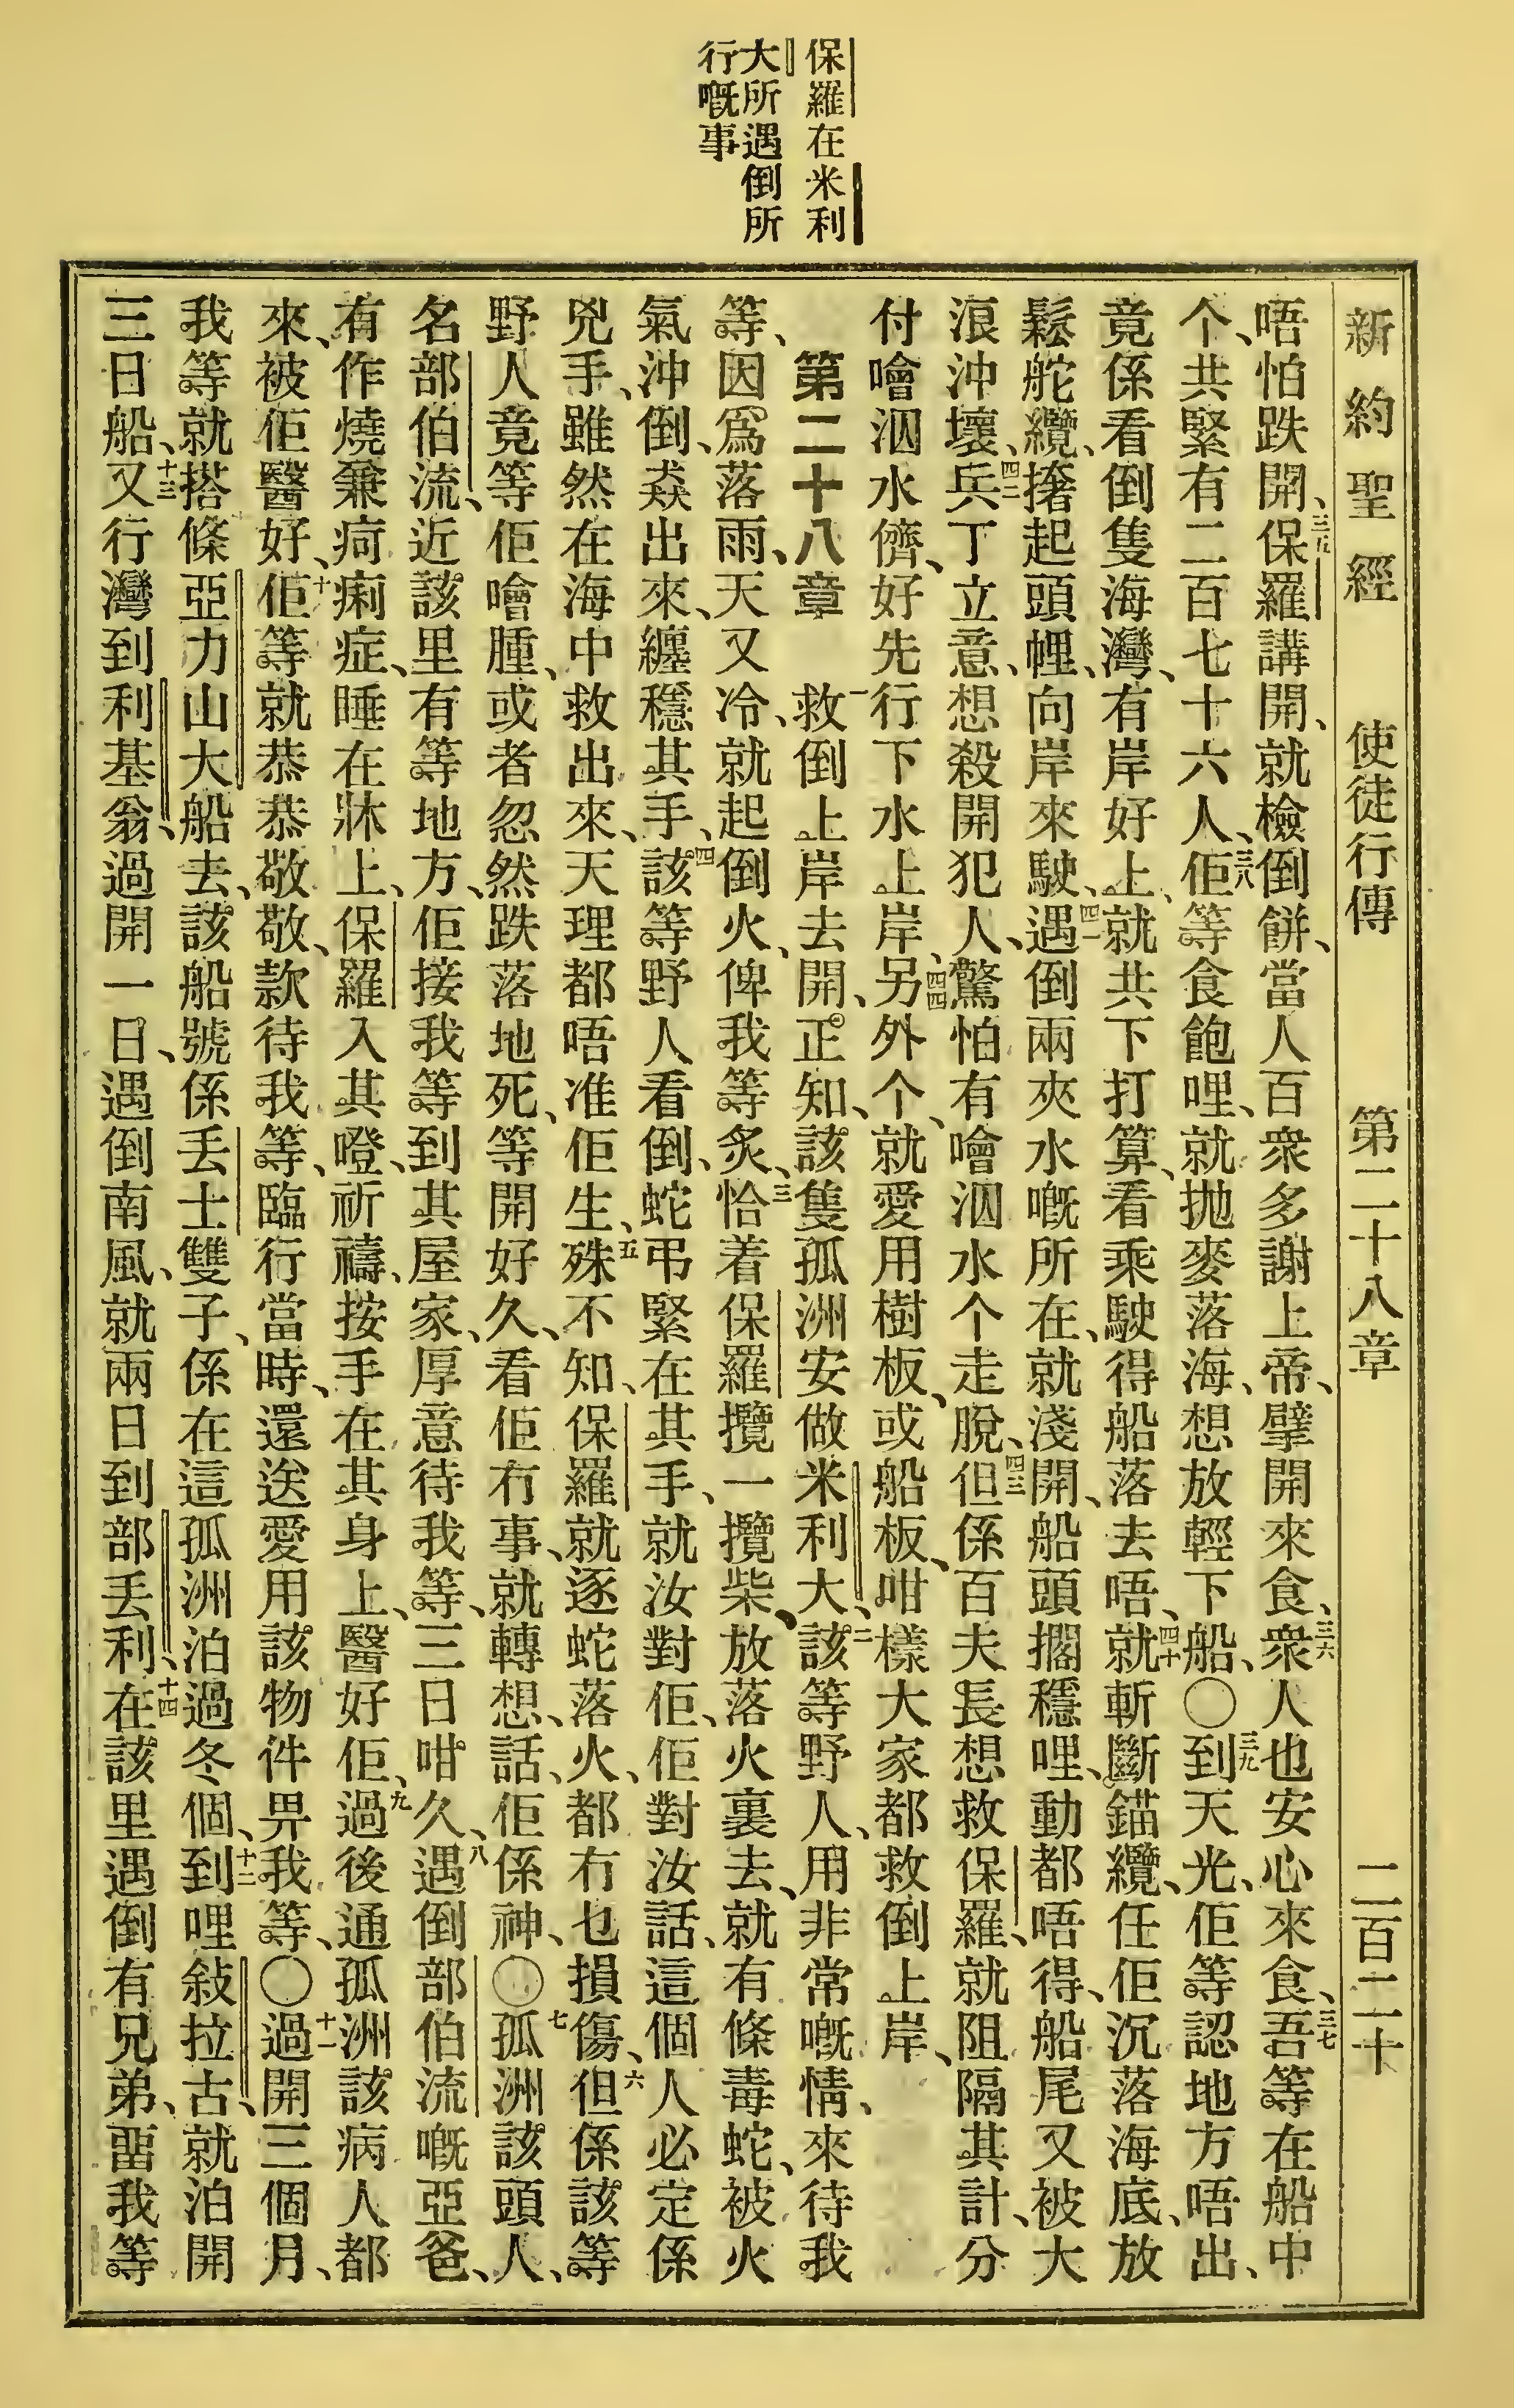 保羅在米利
大所遇倒所
行嘅事
新約聖經 使徒行傳 第二十八章 二百二十
唔怕跌開、三五保羅講開、就檢倒餅、當人百衆多謝上帝、擘開來食、三六衆人也安心來食、三七吾等在船中
个、共緊有二百七十六人、三八佢等食飽哩、就抛麥落海、想放輕下船、〇三九到天光、佢等認地方唔出、
竟係看倒隻海灣、有岸好上、就共下打算、看乘駛得船落去唔、四十就斬斷錨纜、任佢沉落海底、放
鬆舵纜、撐起頭𢃇、向岸來駛、四一遇倒兩夾水嘅所在、就淺開、船頭擱穩哩、動都唔得、船尾又被大
浪沖壞、四二兵丁立意、想殺開犯人、驚怕有噲泅水个走脫、四三但係百夫長想救保羅、就阻隔其計、分
付噲泅水儕、好先行下水上岸、四四另外个、就愛用樹板、或船板、咁樣大家都救倒上岸、
第二十八章 一救倒上岸去開、正知、該隻孤洲安做米利大、二該等野人、用非常嘅情、來待我
等、因爲落雨、天又冷、就起倒火、俾我等炙、三恰着保羅攬一攬柴、放落火裏去、就有條毒蛇、被火
氣沖倒、猋出來、纏穩其手、四該等野人看倒、蛇弔緊在其手、就汝對佢、佢對汝話、這個人必定係
兇手、雖然在海中救出來、天理都唔准佢生、五殊不知、保羅就逐蛇落火、都冇乜損傷、六但係該等
野人竟等佢噲腫、或者忽然跌落地死、等開好久、看佢冇事、就轉想、話、佢係神、〇七孤洲該頭人、
名部伯流、近該里有等地方、佢接我等到其屋家、厚意待我等、三日咁久、八遇倒部伯流嘅亞爸、
有作燒兼疴痢症、睡在牀上、保羅入其嶝、祈禱、按手在其身上、醫好佢、九過後通孤洲該病人都
來、被佢醫好、十佢等就恭恭敬敬、款待我等、臨行當時、還送愛用該物件畀我等、〇十一過開三個月、
我等就搭條亞力山大船去、該船號係丢士雙子、係在這孤洲泊過冬個、十二到哩敍拉古、就泊開
三日船、十三又行灣到利基翁、過開一日、遇倒南風、就兩日到部丢利、十四在該里遇倒有兄弟、畱我等